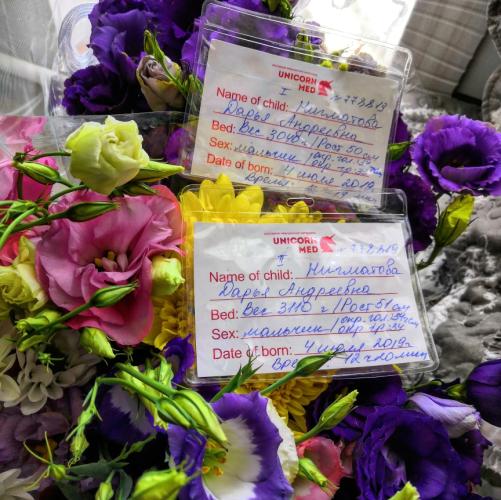 UNICORN
MED
I
Name of child: Нигматова
Дарья Андреевна
Bed: Вес 3040 г/Рост 50 см
Sex: мальчик /окр. гол.
Date of born: 4 июля 2019
Время
UNICORN
MED
II
Name of child: Нигматова
Дарья Андреевна
Bed: Вес 3110 г/Рост 51 см
Sex: мальчик/окр. гр. 34
Date of born: 4 июля 2019г
12ч